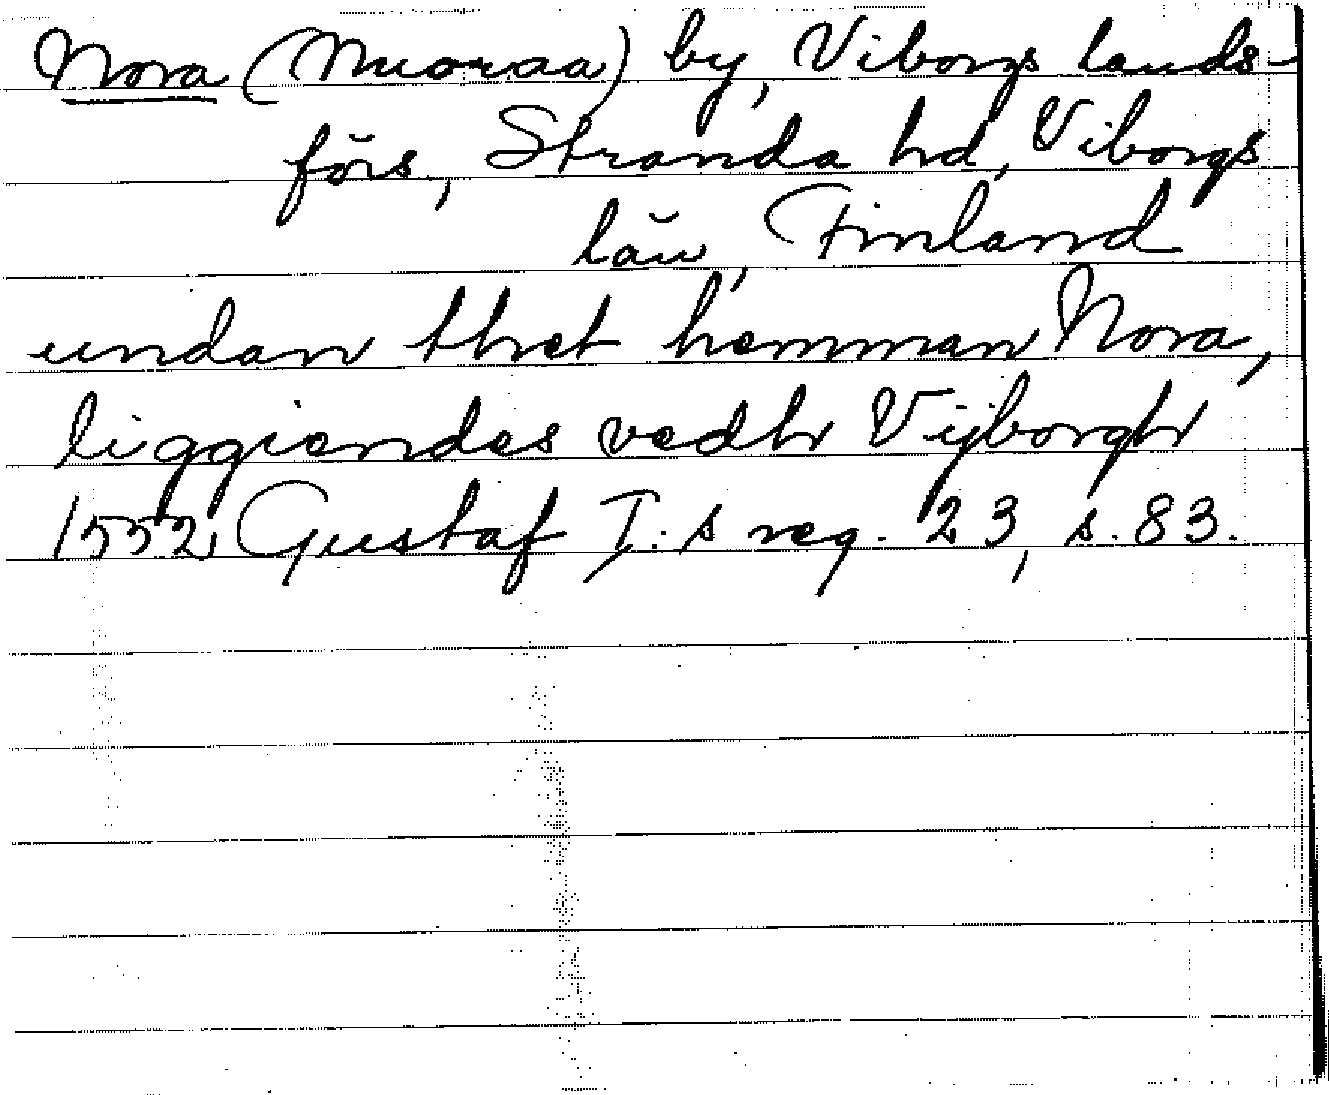 Nora (Nuoraa) by, Viborgs lands-
förs., Stranda hd, Viborgs
län, Finland
undan thet hemman Nora,
liggiendes vedh Vijborgh
1552, Gustaf I:s reg. 23, s. 83.